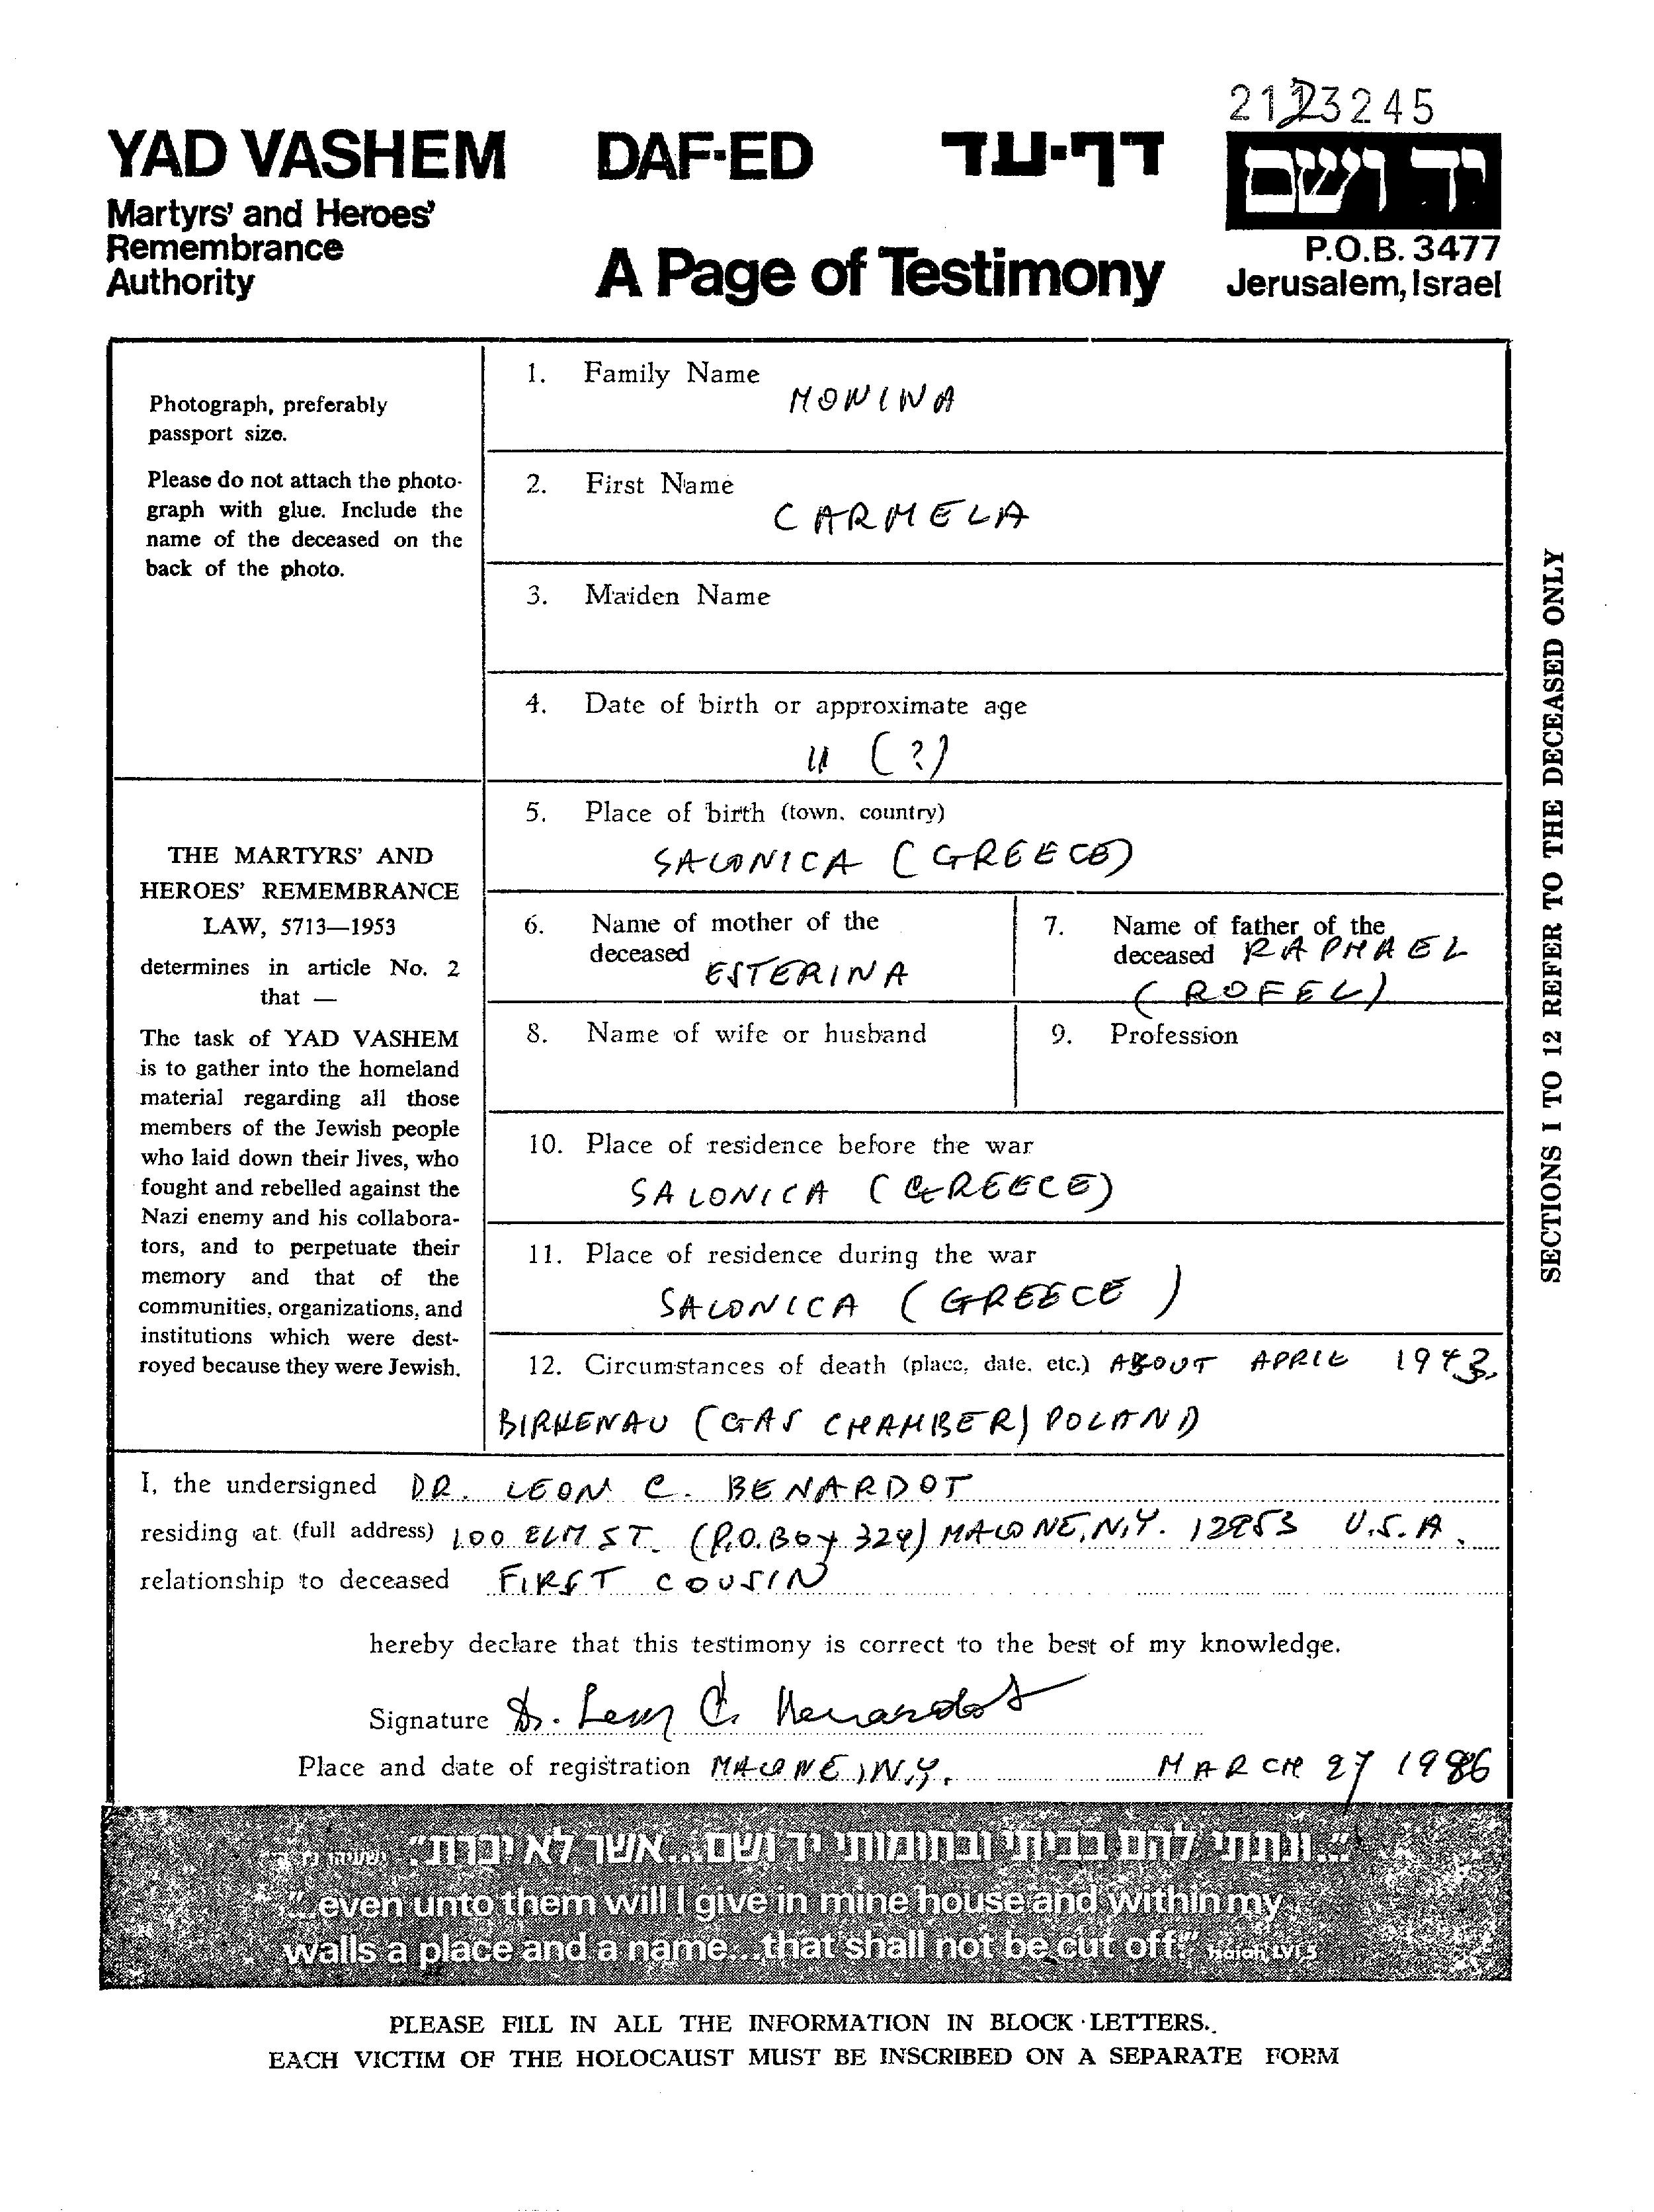 2123245
YAD VASHEM DAF-ED דף-עד יד ושם
Martyrs' and Heroes'
Remembrance
Authority
A Page of Testimony
P.O.B. 3477
Jerusalem, Israel
Photograph, preferably
passport size.
Please do not attach the photo-
graph with glue. Include the
name of the deceased on the
back of the photo.
THE MARTYRS' AND
HEROES' REMEMBRANCE
LAW, 5713—1953
determines in article No. 2
that —
The task of YAD VASHEM
is to gather into the homeland
material regarding all those
members of the Jewish people
who laid down their lives, who
fought and rebelled against the
Nazi enemy and his collabora-
tors, and to perpetuate their
memory and that of the
communities, organizations, and
institutions which were dest-
royed because they were Jewish.
1. Family Name
MONINA
2. First Name
CARMELA
3. Maiden Name
4. Date of birth or approximate age
11 (?)
5. Place of birth (town, country)
SALONICA (GREECE)
6. Name of mother of the
deceased ESTERINA
7. Name of father of the
deceased RAPHAEL
(ROFEL)
8. Name of wife or husband
9. Profession
10. Place of residence before the war
SALONICA (GREECE)
11. Place of residence during the war
SALONICA (GREECE)
12. Circumstances of death (place, date, etc.) ABOUT APRIL 1943,
BIRKENAU (GAS CHAMBER) POLAND
SECTIONS 1 TO 12 REFER TO THE DECEASED ONLY
I, the undersigned DR. LEON C. BENARDOT
residing at (full address) 100 ELM ST. (P.O. BOX 324) MALONE, N.Y. 12953 U.S.A.
relationship to deceased FIRST COUSIN
hereby declare that this testimony is correct to the best of my knowledge.
Signature Dr. Leon C. Benardot
Place and date of registration MALONE, N.Y. MARCH 27 1986
"...ונתתי להם בביתי ובחומותי יד ושם...אשר לא יכרת" ישעיהו נו, ה
"...even unto them will I give in mine house and within my
walls a place and a name...that shall not be cut off" Isaiah LVI 5
PLEASE FILL IN ALL THE INFORMATION IN BLOCK LETTERS.
EACH VICTIM OF THE HOLOCAUST MUST BE INSCRIBED ON A SEPARATE FORM